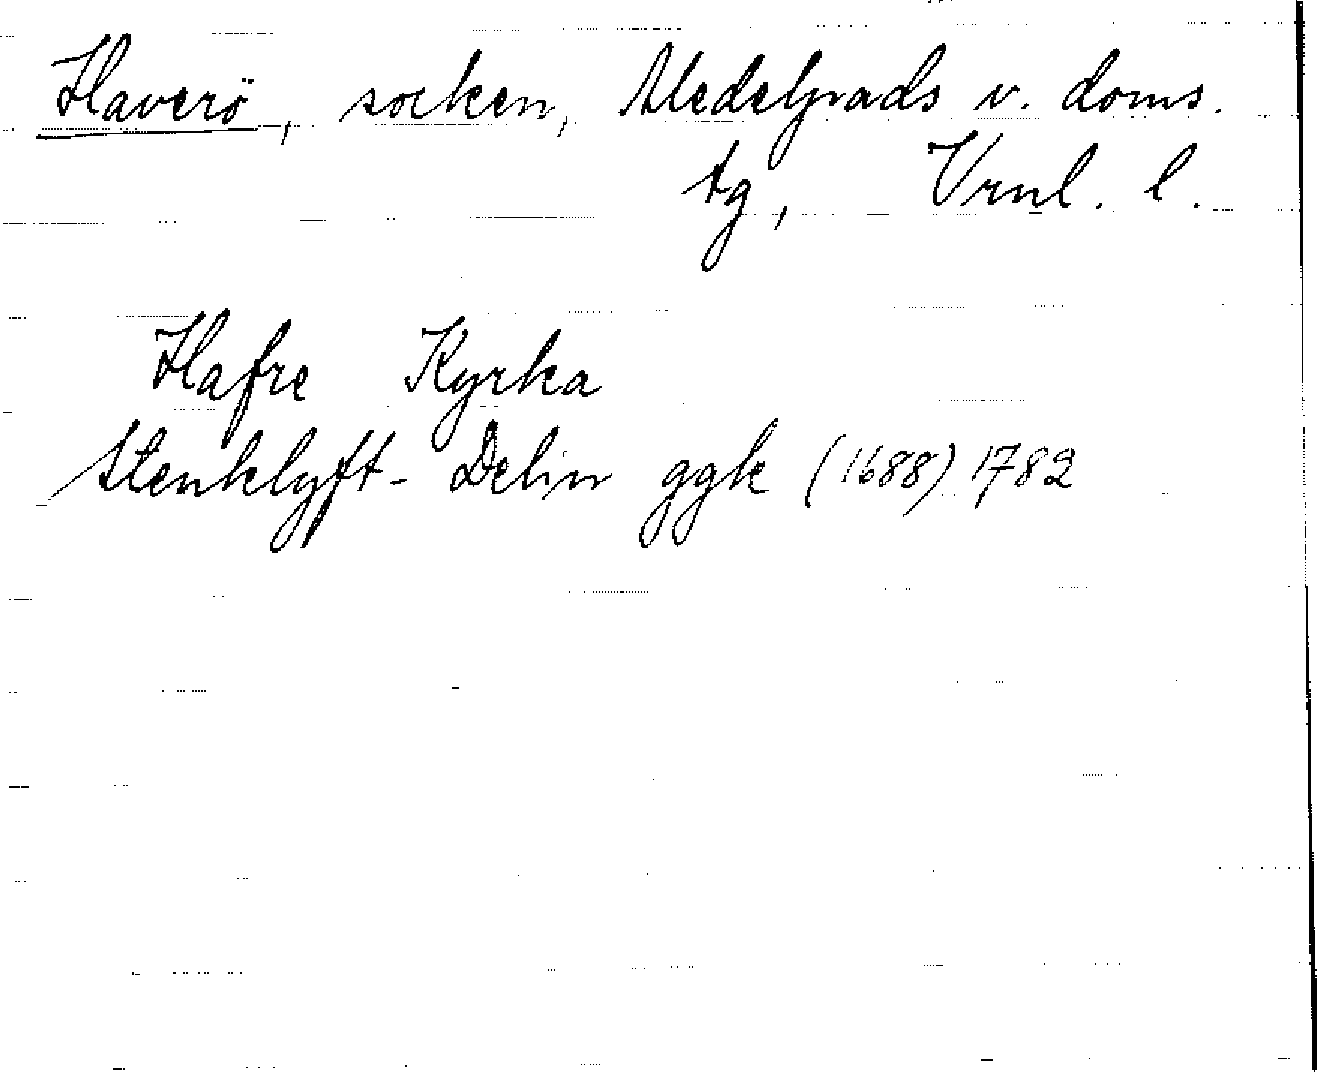 Haverö, socken, Medelpads v. doms.
tg, Vrnl. l.
Hafre Kyrka
Stenklyft- Delin ggk (1688) 1782